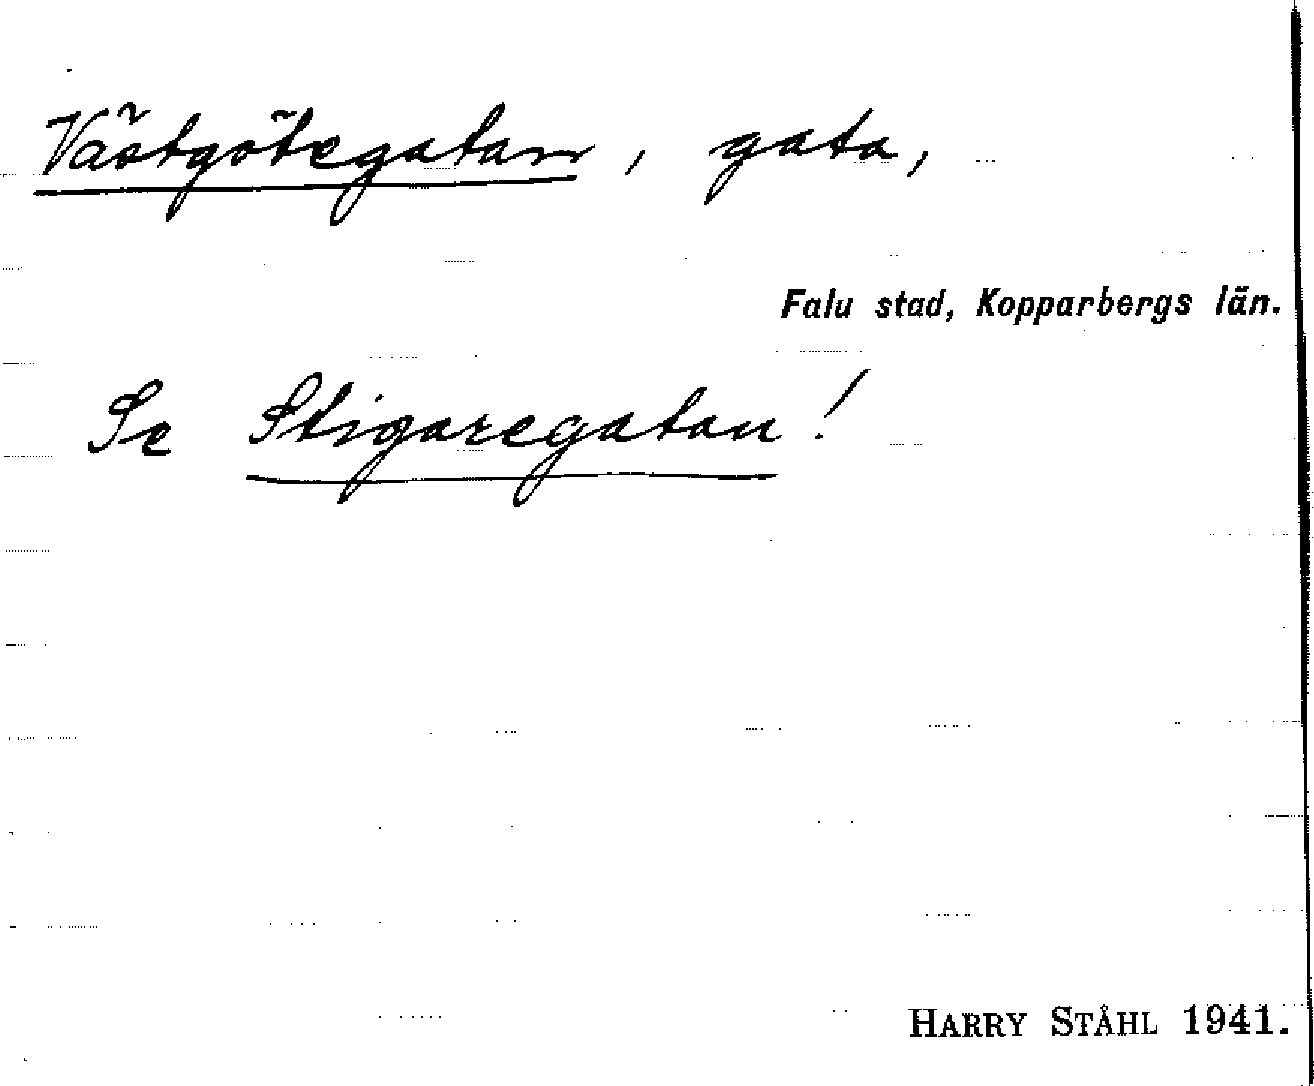 Västgötegatan, gata,
Falu stad, Kopparbergs län.
Se Stigaregatan!
HARRY STÅHL 1941.